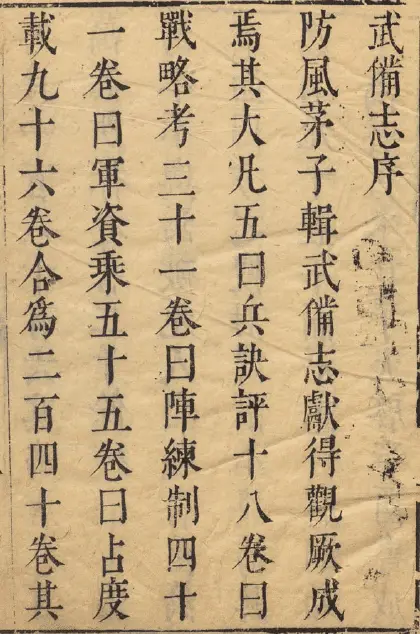 武備志序
防風茅子輯武備志獻得觀厥成
焉其大凡五曰兵訣評十八卷曰
戰略考三十一卷曰陣練制四十
一卷曰軍資乘五十五卷曰占度
載九十六卷合爲二百四十卷其